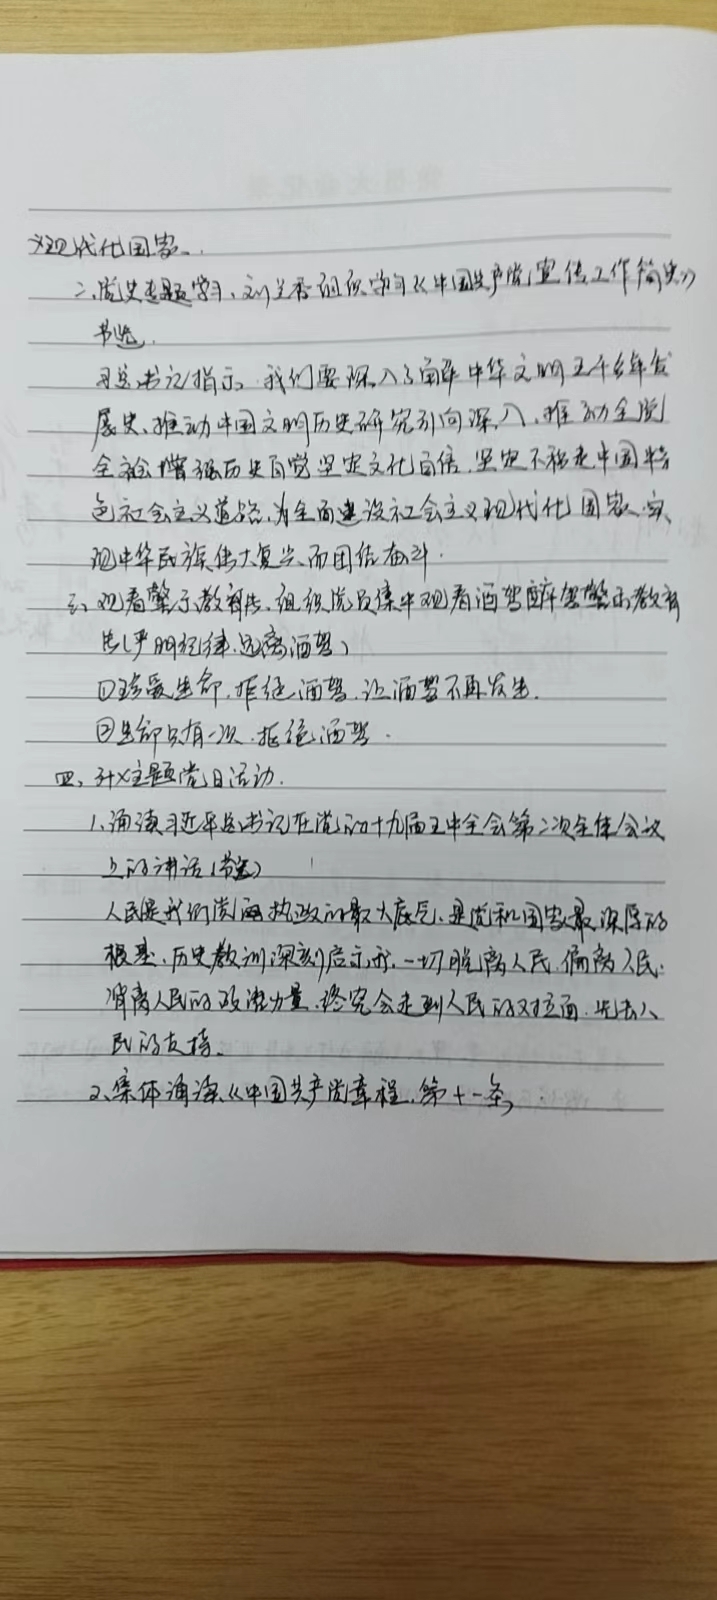 义现代化国家。
二、党史专题学习、刘兰香组织学习《中国共产党宣传工作简史》
书选.
习总书记指示 我们要深入了解中华文明五千多年发
展史、推动中国文明历史研究引向深入、推动全党
全社会增强历史自觉坚定文化自信、坚定不移走中国特
色社会主义道路、为全面建设社会主义现代化国家、实
现中华民族伟大复兴而团结奋斗.
三、观看警示教育片、组织党员集中观看酒驾醉驾警示教育
片(严明纪律、远离酒驾)
①珍爱生命、拒绝酒驾、让酒驾不再发生.
②生命只有一次、拒绝酒驾.
四、开义主题党日活动.
1、诵读习近平总书记在党的十九届五中全会第二次全体会议
上的讲话(节选)
人民是我们党执政的最大底气、是党和国家最深厚的
根基、历史教训深刻启示我、一切脱离人民、偏离人民、
消离人民的政治力量、终究会走到人民的对立面、失去人
民的支持。
2、集体诵读《中国共产党章程、第十一条》